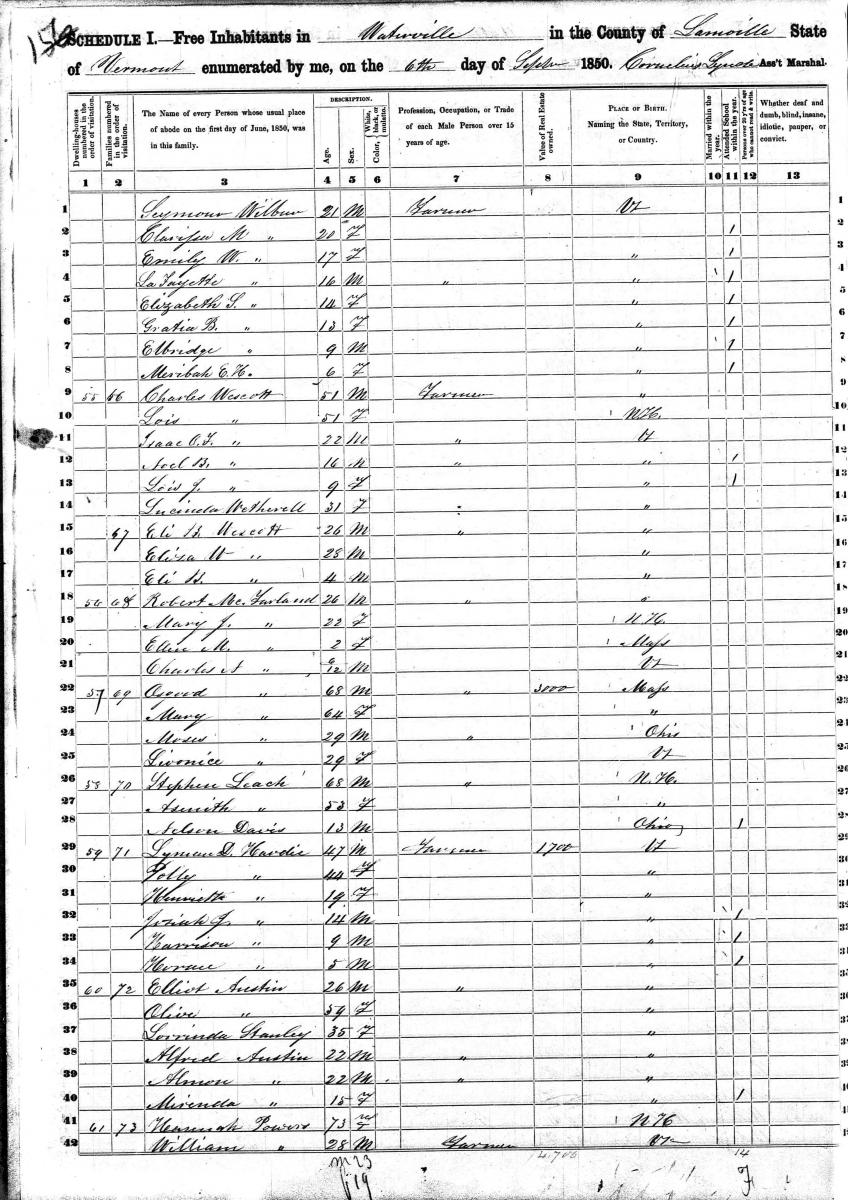 SCHEDULE I.—Free Inhabitants in Waterville in the County of Lamoille State
of Vermont enumerated by me, on the 6th day of Septr 1850. Cornelius Lynde Ass't Marshal.
DESCRIPTION.
Dwelling-houses numbered in the order of visitation.
Families numbered in the order of visitation.
The Name of every Person whose usual place of abode on the first day of June, 1850, was in this family.
Age.
Sex.
Color, White, black, or mulatto.
Profession, Occupation, or Trade of each Male Person over 15 years of age.
Value of Real Estate owned.
PLACE OF BIRTH. Naming the State, Territory, or Country.
Married within the year.
Attended School within the year.
Persons over 20 y'rs of age who cannot read & write.
Whether deaf and dumb, blind, insane, idiotic, pauper, or convict.
1 2 3 4 5 6 7 8 9 10 11 12 13
1 Seymour Wilbur 21 M Farmer Vt 1
2 Clarissa M " 20 F 1
3 Emily W. " 17 F " 1
4 La Fayette " 16 M " " 1
5 Elizabeth S. " 14 F " 1
6 Gratia B. " 13 F " 1
7 Elbridge " 9 M " 1
8 Meribah E. H. " 6 F " 1
9 55 66 Charles Wescott 51 M Farmer "
10 Lois " 51 F N.H.
11 Isaac O. F. " 22 M " Vt
12 Noel B. " 16 M " " 1
13 Lois J. " 9 F " 1
14 Lucinda Wetherell 31 F "
15 67 Eli B. Wescott 26 M " "
16 Eliza W " 28 M "
17 Eli B. " 4 M "
18 56 68 Robert Mc. Farland 26 M " "
19 Mary J. " 22 F N.H.
20 Ellen M. " 2 F Mass
21 Charles A " 6/12 M Vt
22 57 69 Osgood " 68 M " 3000 Mass
23 Mary " 64 F "
24 Moses " 29 M " Ohio
25 Livonice " 29 F Vt
26 58 70 Stephen Leach 68 M " N.H.
27 Asenith " 53 F "
28 Nelson Davis 13 M Ohio 1
29 59 71 Lyman D. Hardie 47 M Farmer 1700 Vt
30 Polly " 44 F "
31 Henrietta " 19 F "
32 Josiah J. " 14 M " 1
33 Harrison " 9 M " 1
34 Horace " 5 M " 1
35 60 72 Elliot Austin 26 M " "
36 Olive " 59 F "
37 Lorrinda Stanley 35 F "
38 Alfred Austin 22 M " "
39 Almon " 22 M " "
40 Mirenda " 15 F " 1
41 61 73 Hannah Powers 73 F N H
42 William " 28 M Farmer Vt
m 23 4,700 14
f 19